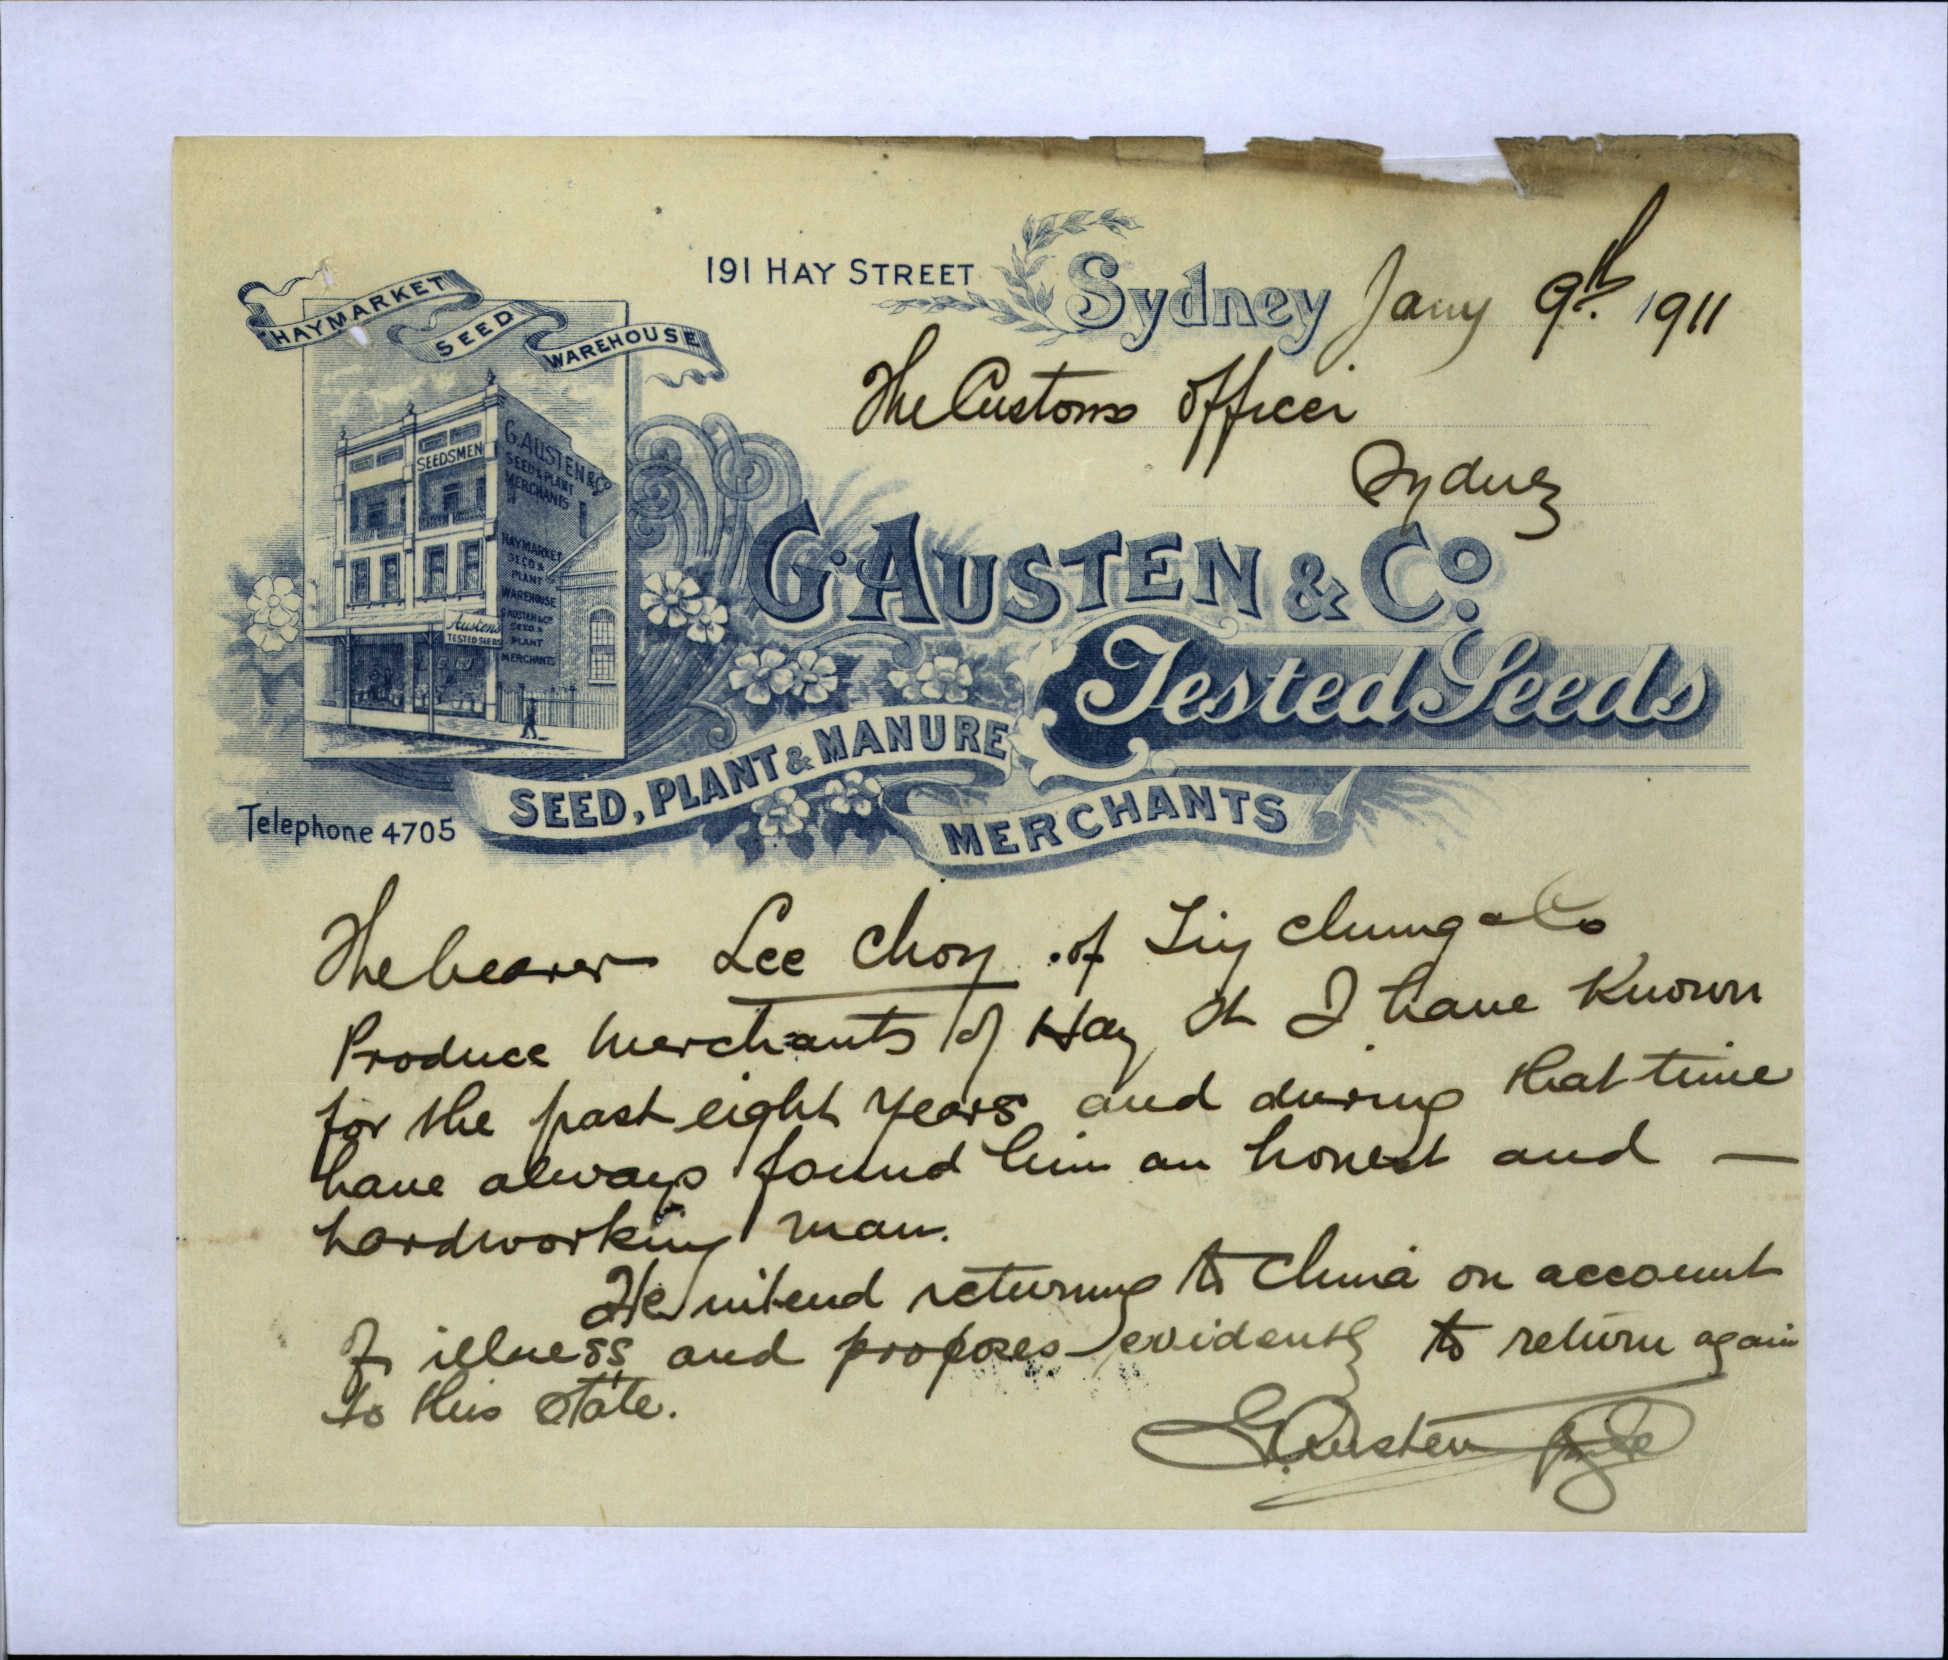 191 HAY STREET Sydney Jany 9th. 1911
HAYMARKET SEED WAREHOUSE
The Customs Officer
Sydney
SEEDSMEN
G. AUSTEN & Co
SEED & PLANT
MERCHANTS
HAYMARKET
SEED &
PLANT
WAREHOUSE
G AUSTEN & Co
SEED &
PLANT
MERCHANTS
Austens
TESTED SEEDS
G. AUSTEN & Co.
Tested Seeds
SEED, PLANT & MANURE
MERCHANTS
Telephone 4705
The bearer Lee Choy of chung & Co
Produce Merchants of Hay St I have Known
for the past eight years and during that time
have always found him an honest and —
hardworking man.
He intend returning to China on account
of illness and proposes evidently to return again
to this State.
G. Austen